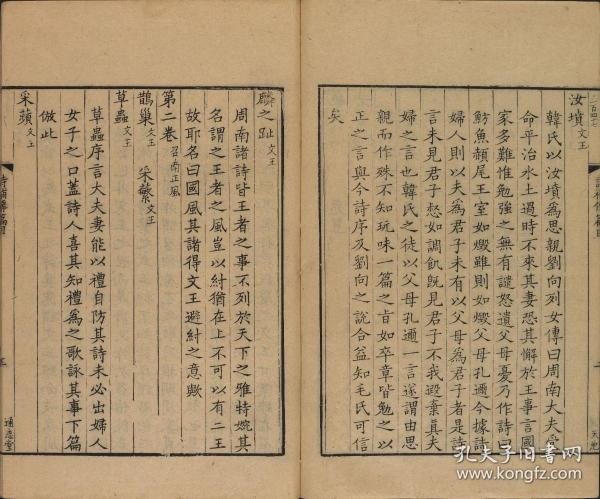 二百四七
汝墳文王
韓氏以汝墳為思親劉向列女傳曰周南大夫受
命平治水土過時不來其妻恐其懈於王事言國
家多難惟勉強之無有譴怒遺父母憂乃作詩曰
魴魚赬尾王室如燬雖則如燬父母孔邇今據詩
婦人則以夫為君子未有以父母為君子者是詩
言未見君子惄如調飢既見君子不我遐棄真夫
婦之言也韓氏之徒以父母孔邇一言遂謂由思
親而作殊不知玩味一篇之旨如卒章皆勉之以
正之言與今詩序及劉向之說合益知毛氏可信
矣
麟之趾文王
周南諸詩皆王者之事不列於天下之雅特婉其
名謂之王者之風豈以紂猶在上不可以有二王
故耶名曰國風其諸得文王避紂之意歟
第二卷召南正風
鵲巢文王 采蘩文王
草蟲文王
草蟲序言大夫妻能以禮自防其詩未必出婦人
女子之口蓋詩人喜其知禮為之歌詠其事下篇
倣此
采蘋文王
三
通志堂
孔夫子旧书网
kongfz.com